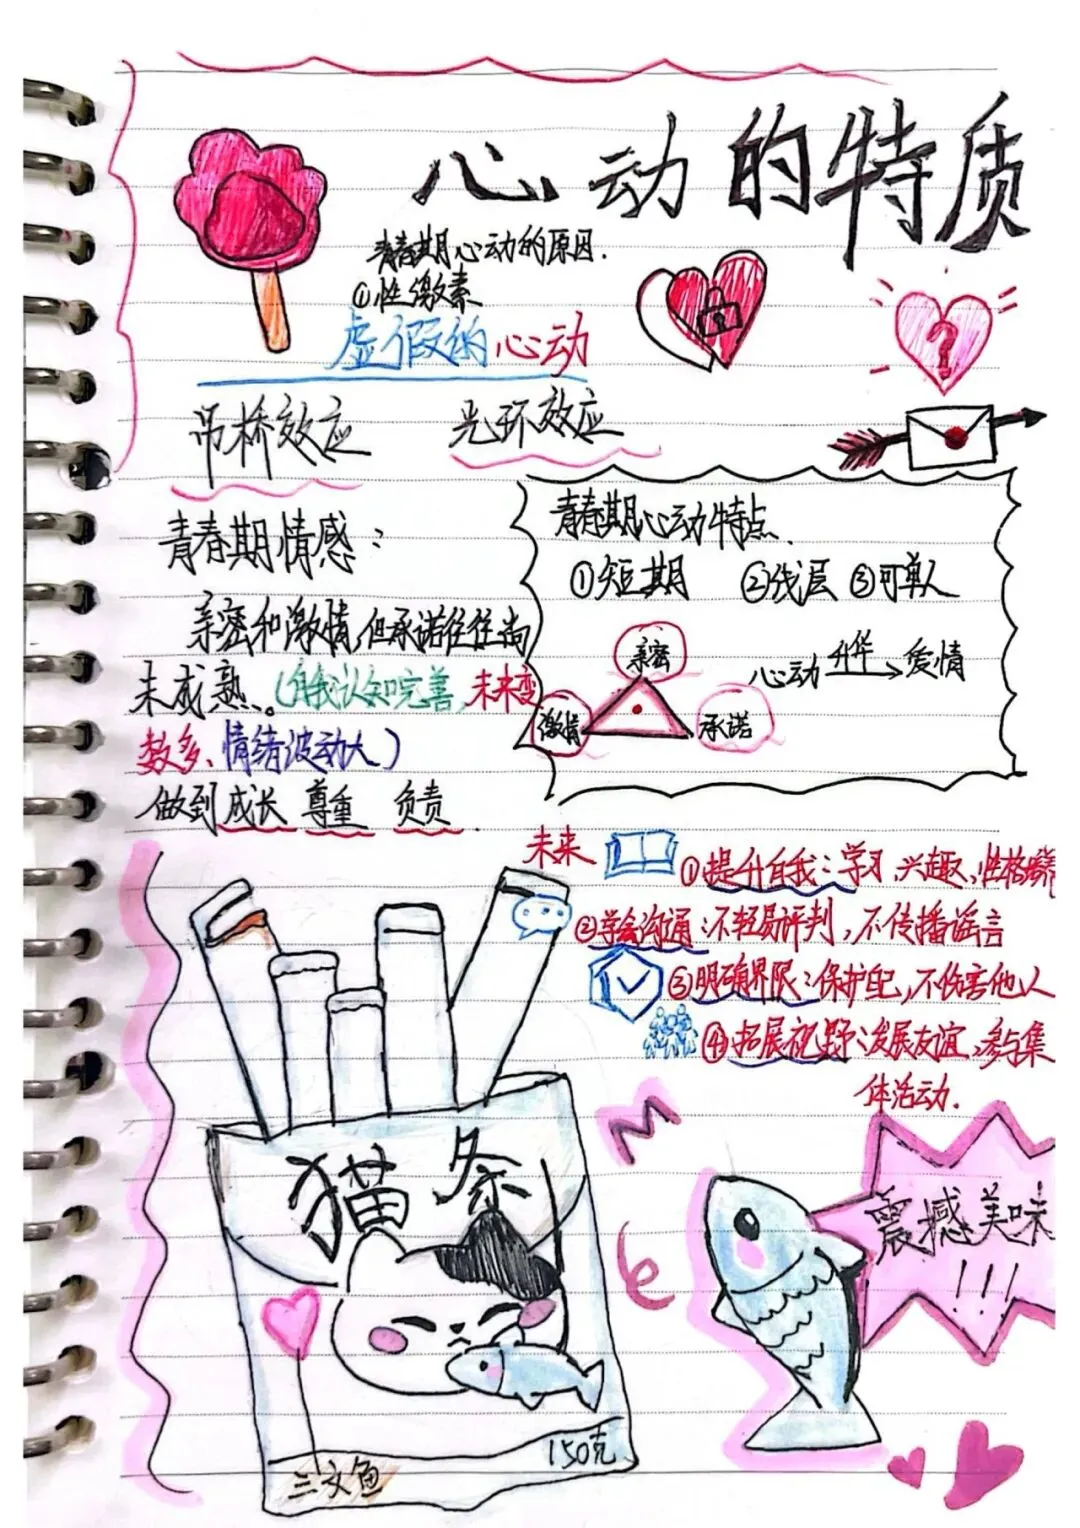 心动的特质
青春期心动的原因.
①性激素
虚假的心动
吊桥效应 光环效应
青春期情感：
亲密和激情,但承诺往往尚
未成熟。(自我认知完善,未来变
数多、情绪波动大)
做到成长 尊重 负责.
青春期心动特点.
①短期 ②浅层 ③可单人
亲密
激情
承诺
心动 升华 爱情
未来
①提升自我：学习,兴趣、性格
②学会沟通:不轻易评判,不传播谣言
③明确界限:保护自己,不伤害他人
④拓展视野:发展友谊,参与集
体活动.
猫条
三文鱼
150克
震撼美味
!!!